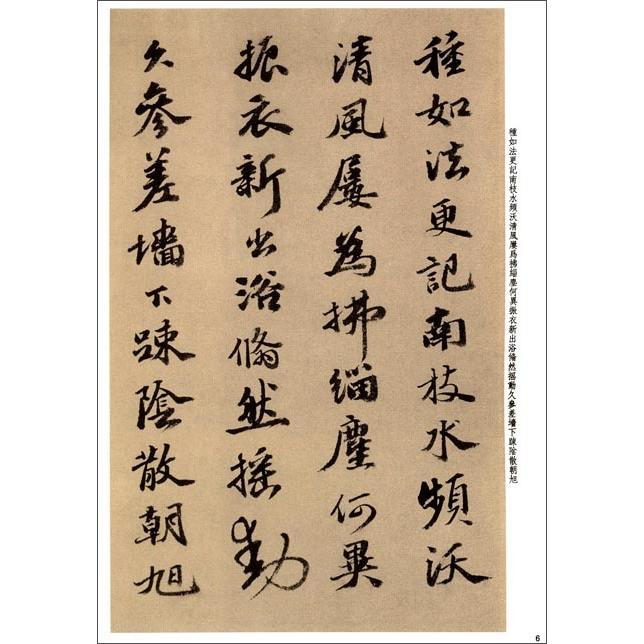 種如法更記南枝水頻沃
清風屢為拂緇塵何異
振衣新出浴翛然摇動
久參差墻下踈陰散朝旭
種如法更記南枝水頻沃清風屢爲拂緇塵何異振衣新出浴翛然摇動久參差墻下踈陰散朝旭
6